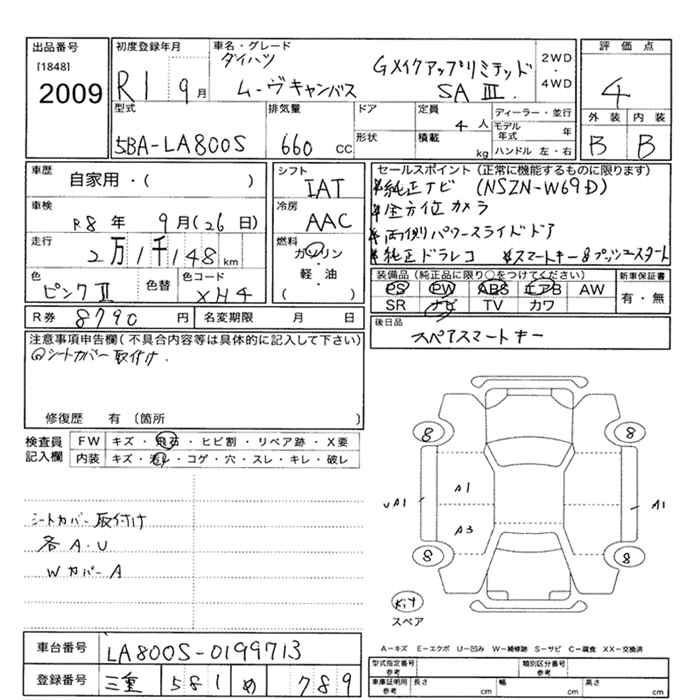 出品番号
[1848]
2009
初度登録年月
R1 9月
車名・グレード
ダイハツ
ムーヴキャンバス
Gメイクアップリミテッド
SAⅢ
2WD
・
4WD
評価点
4
外装 内装
B B
型式
5BA-LA800S
排気量
660 CC
ドア
形状
定員
4人
積載
kg
ディーラー・並行
モデル年式 年
ハンドル 左・右
車歴
自家用・( )
車検
R8年 9月(26日)
走行
2万1千148km
色
ピンクⅡ
色替
色コード
XH4
シフト
IAT
冷房
AAC
燃料
ガソリン
軽・油
( )
セールスポイント(正常に機能するものに限ります)
*純正ナビ (NSZN-W69D)
*全方位カメラ
*両側パワースライドドア
*純正ドラレコ *スマートキー&プッシュスタート
装備品(純正品に限り○をつけてください)
PS PW ABS エアB AW
SR ナビ TV カワ
新車保証書
有・無
R券 8790円
名変期限 月 日
後日品
スペアスマートキー
注意事項申告欄(不具合内容等は具体的に記入して下さい)
シートカバー取付け.
修復歴 有(箇所 )
検査員
記入欄
FW キズ・飛石・ヒビ割・リペア跡・X要
内装 キズ・汚レ・コゲ・穴・スレ・キレ・破レ
シートカバー取付け
各A・U
WカバーA
8
8
A1
UA1
A1
A3
8
8
キット
スペア
A-キズ E-エクボ U-凹み W-補修跡 S-サビ C-腐食 XX-交換済
車台番号
LA800S-0199713
登録番号
三重 581 め 789
型式指定番号
参考
類別区分番号
参考
車庫証明用
参考
長さ cm
幅 cm
高さ cm